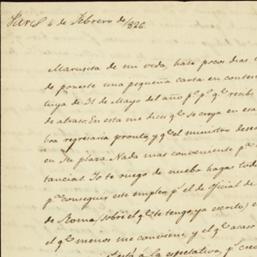 Paris 4 de Febrero de 1826.
Maruxita de mi vida, hace pocos dias
de ponerte una pequeña carta en
tuya de 31 de Mayo del año pº pº qº recibi
de atraso. En esta me dices qº se creya en esa
regresaria pronto, y qº el ministro
en Sta plaza. Nada mas conveniente pª
tancial. Yo te ruego de nuebo hagas
pª conseguir este empleo pº el de oficial de
de Roma, (sobre el qº te tengo ya escrito)
el qº menos me conviene, y el qº acaso
a la espectativa, pº